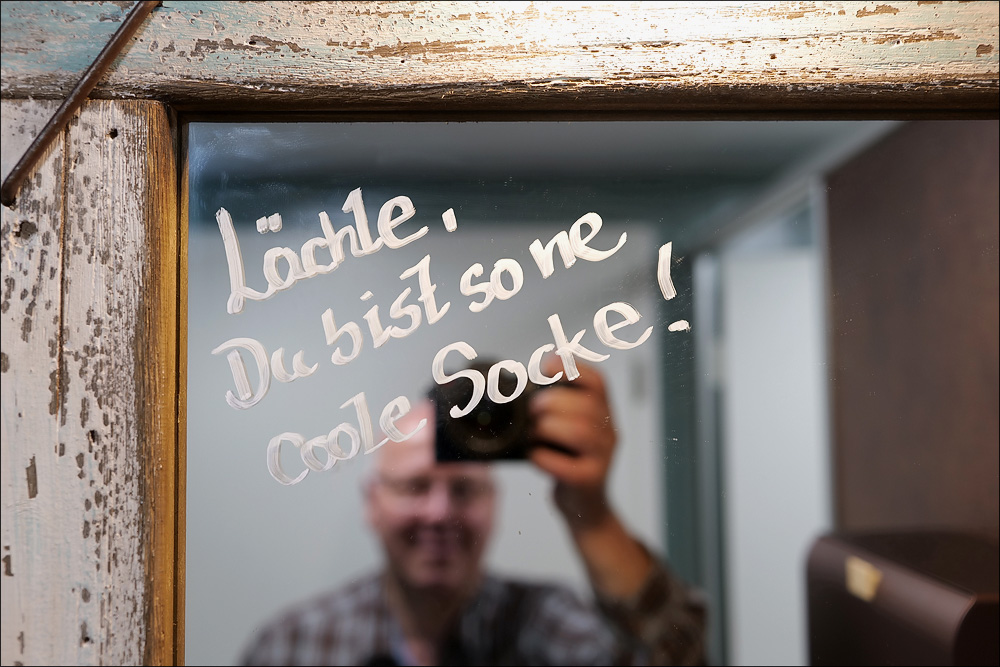 Lächle,
Du bist so ne
coole Socke!